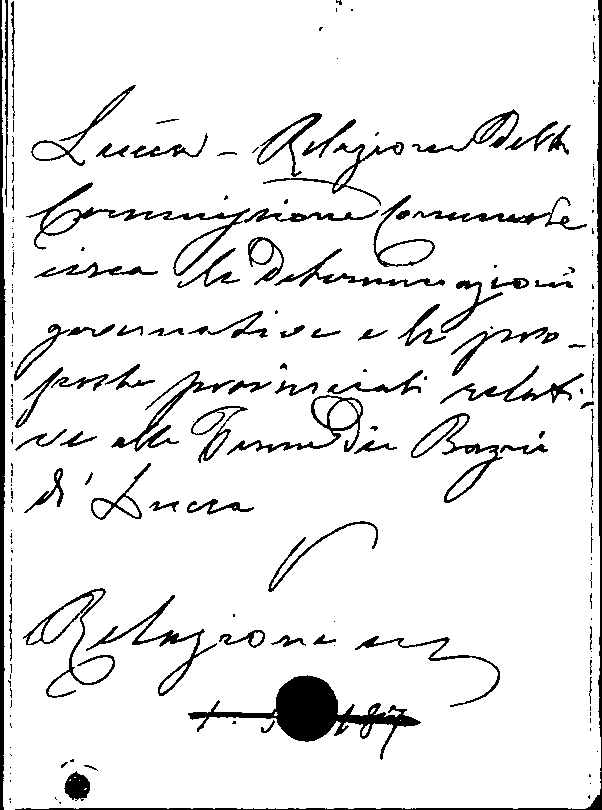 Lucca - Relazione della
Commissione Comunale
circa le determinazioni
governative e le pro-
poste provinciali relati-
ve alle Terme dei Bagni
di Lucca
Relazione